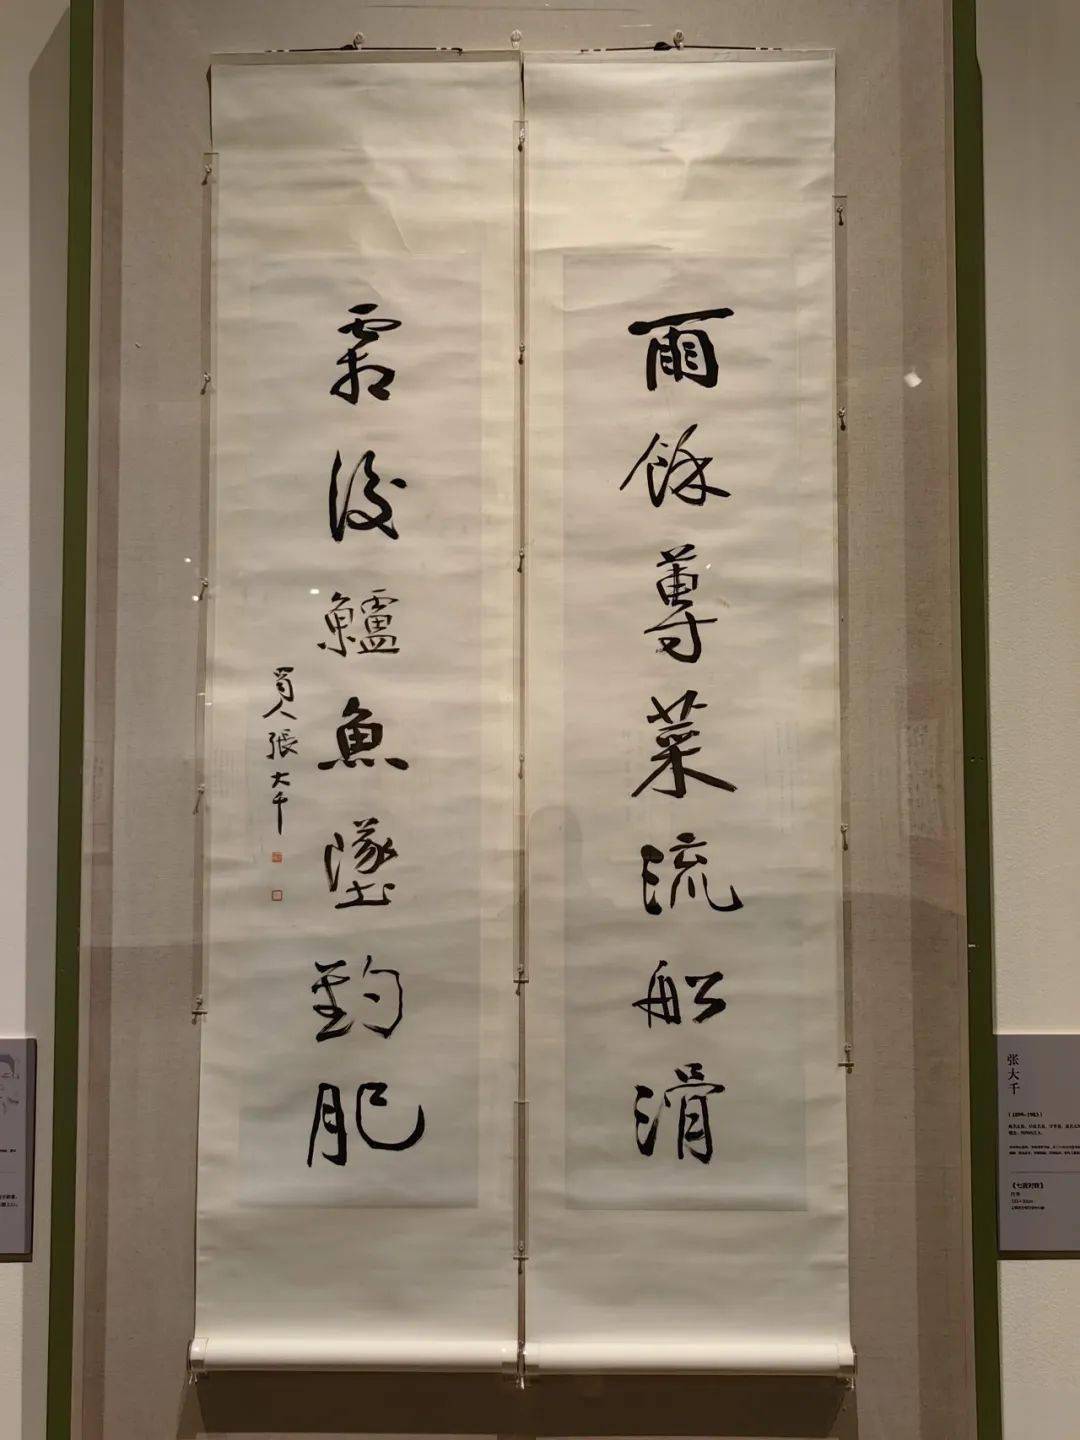 雨餘蓴菜流船滑
霜後鱸魚墜釣肥
蜀人張大千
张大千
（1899-1983）
《七言对联》